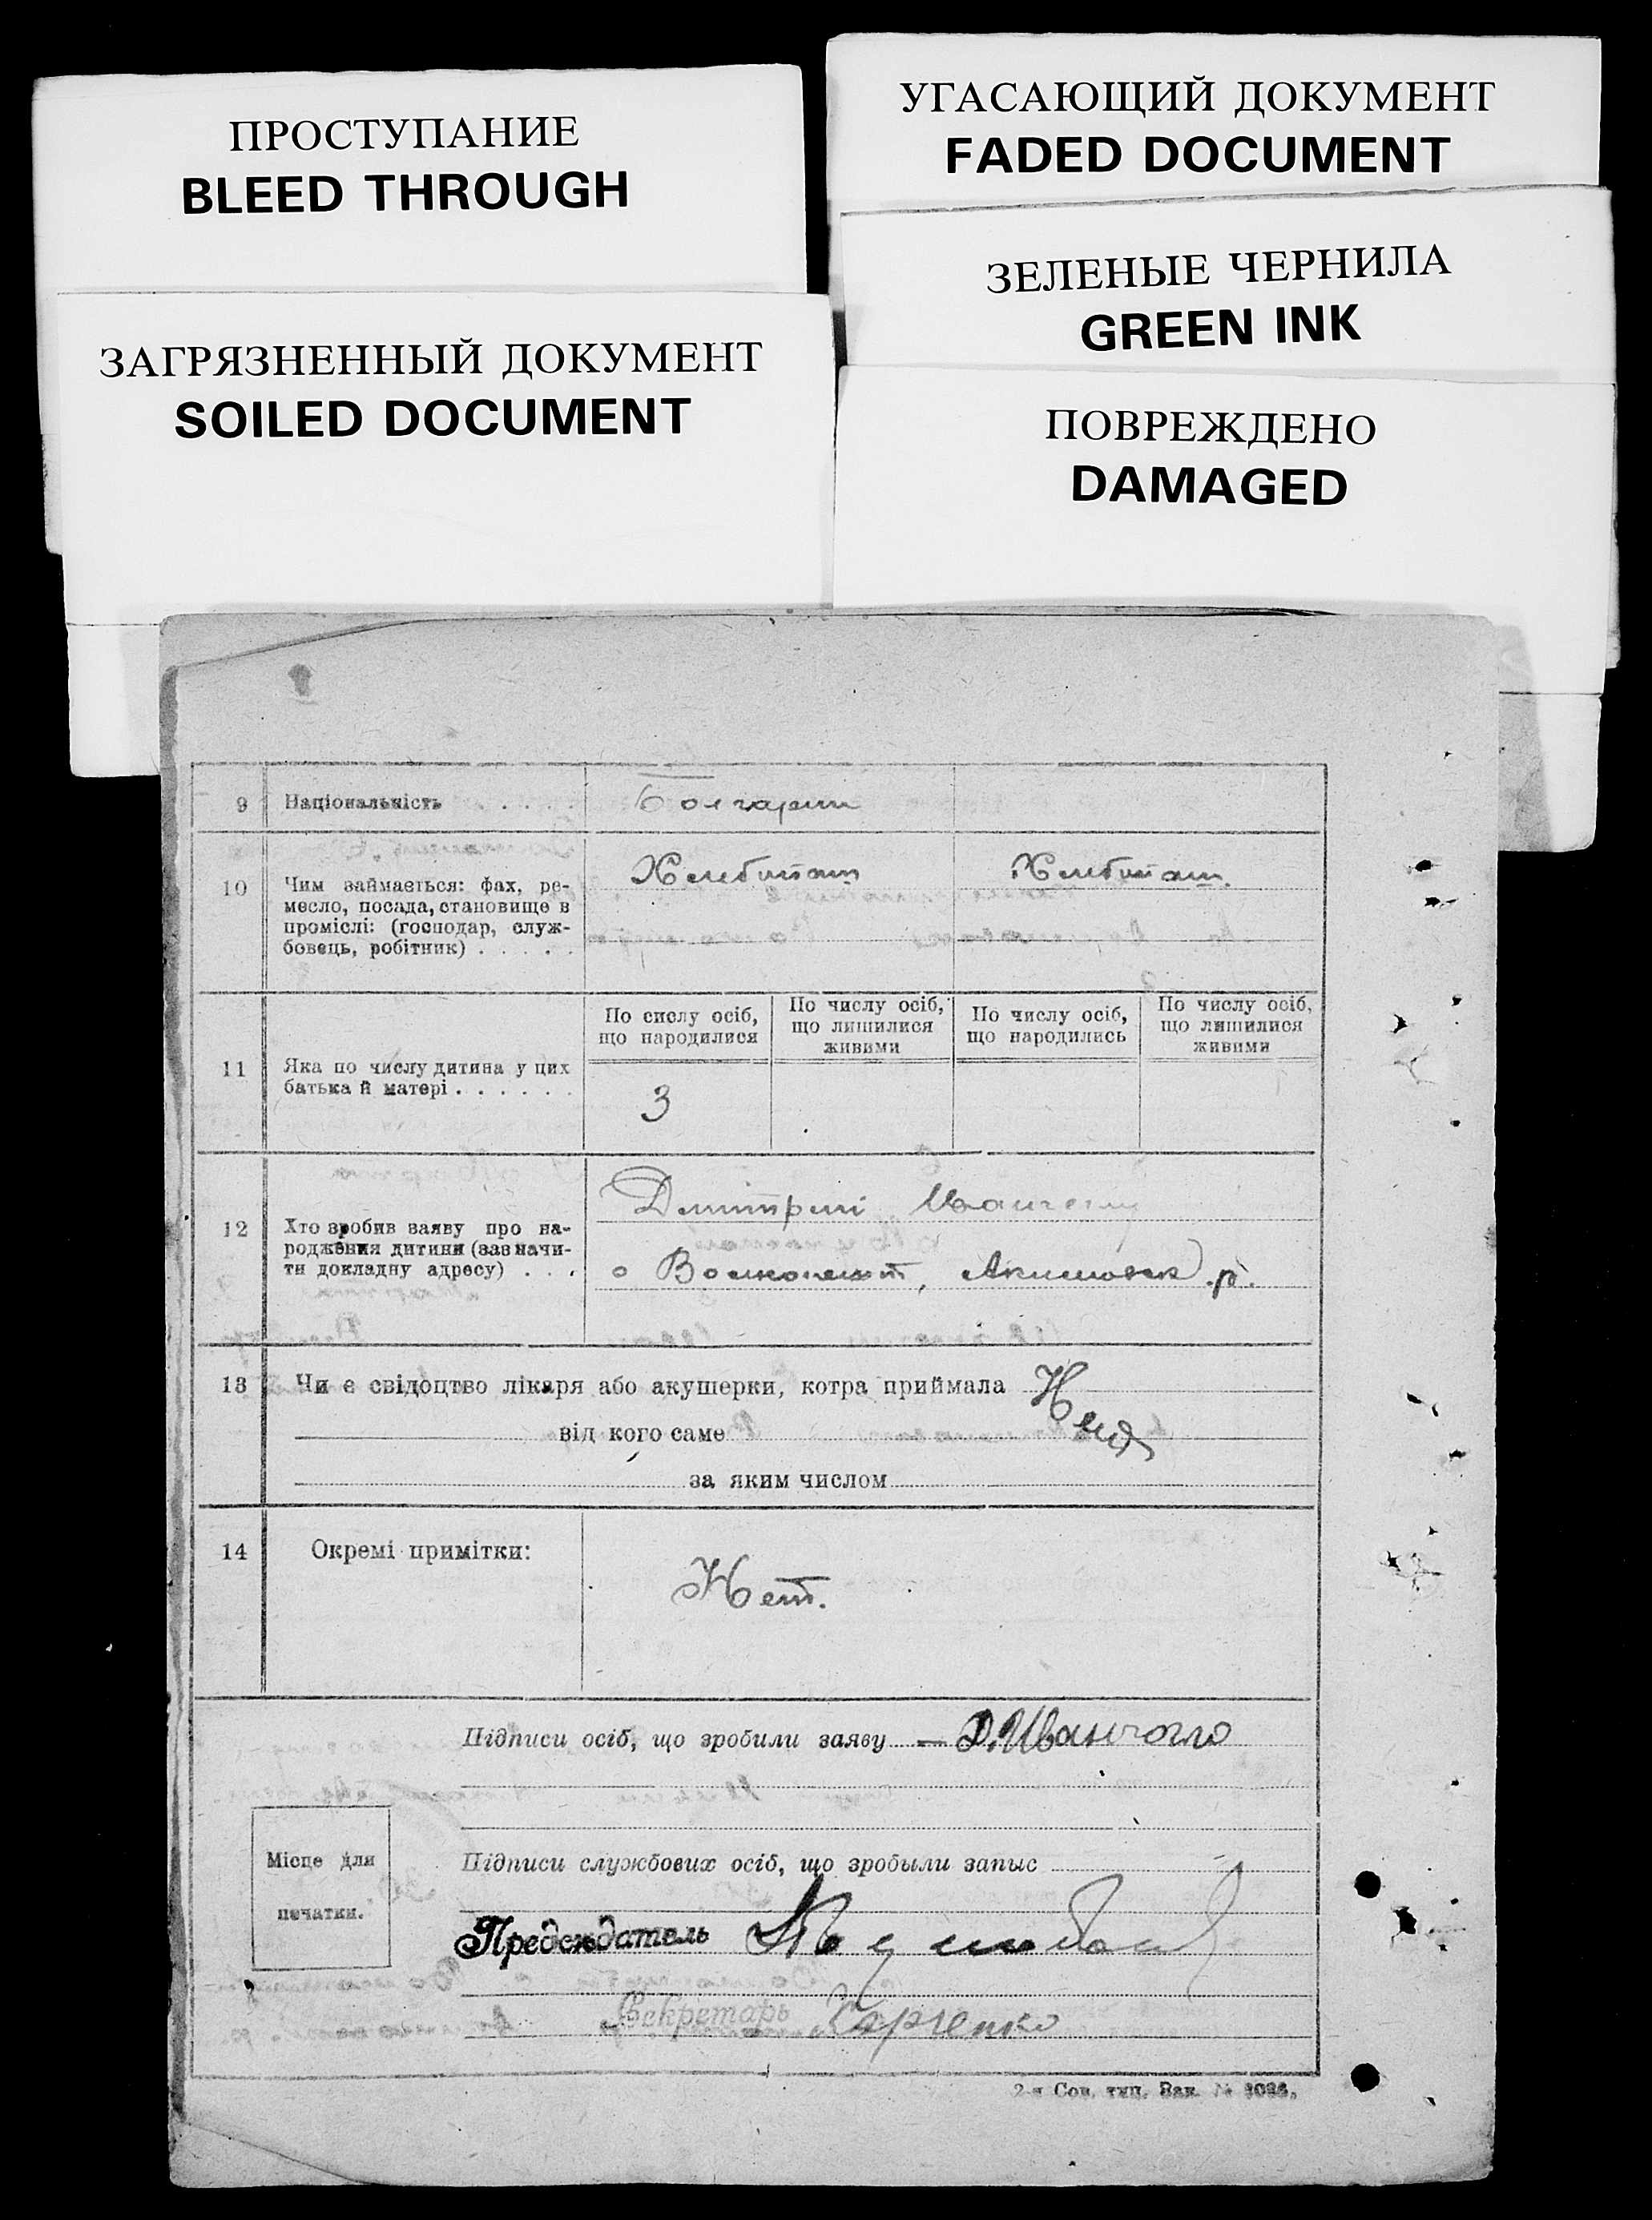 ПРОСТУПАНИЕ
BLEED THROUGH
УГАСАЮЩИЙ ДОКУМЕНТ
FADED DOCUMENT
ЗЕЛЕНЫЕ ЧЕРНИЛА
GREEN INK
ЗАГРЯЗНЕННЫЙ ДОКУМЕНТ
SOILED DOCUMENT
ПОВРЕЖДЕНО
DAMAGED
9 Національність . . . . Болгарин
10 Чим займаеться: фах, ре-
месло, посада, становище в
проміслі: (господар, служ-
бовець, робітник) . . . . .
Хлебопаш Хлебопаш.
По сислу осіб,
що народилися
По числу осіб,
що лишилися
живими
По числу осіб,
що народились
По числу осіб,
що лишилися
живими
11 Яка по числу дитина у цих
батька й матері . . . . . .
3
12 Хто зробив заяву про на-
родження дитини (зазначи-
ти докладну адресу) . . .
Дмитрий
Акимовск. р.
13 Чи е свідоцтво лікаря або акушерки, котра приймала Нет
від кого саме
за яким числом
14 Окремі примітки:
Нет.
Підписи осіб, що зробили заяву — Д. Иванчогло
Місце для
печатки.
Підписи службових осіб, що зробыли запыс
Председатель
Секретарь Харченко
2-я Сов. тип. Зак. №